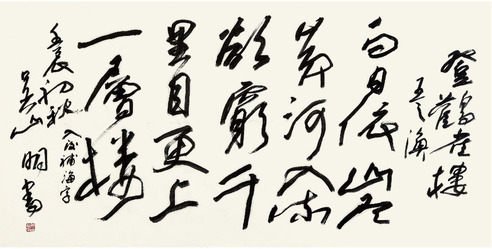 登鸛雀樓
王之渙
白日依山尽
黄河入流
欲窮千
里目更上
一層樓
入後補海字
壬辰初秋
吴山明書